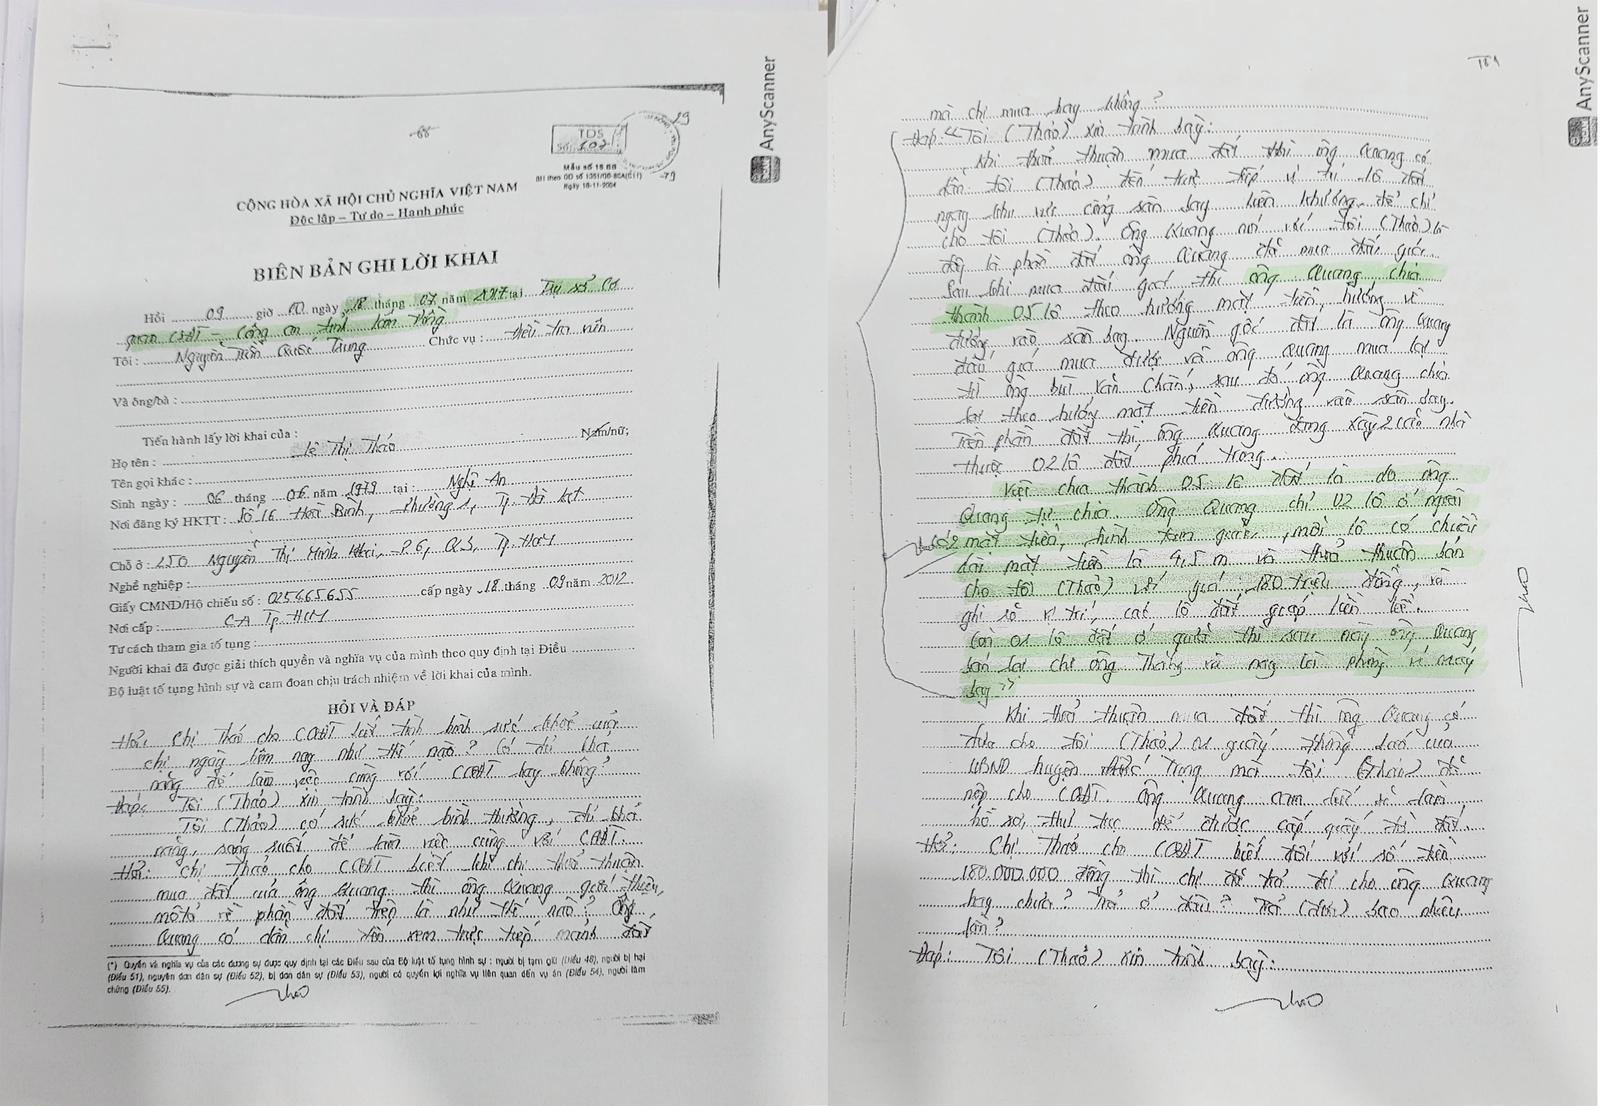 AnyScanner
TDS
Số: 202
Mẫu số 15 BB
BH theo QĐ số 1351/
Ngày 18-11-2004
CỘNG HÒA XÃ HỘI CHỦ NGHĨA VIỆT NAM
Độc lập – Tự do – Hạnh phúc
BIÊN BẢN GHI LỜI KHAI
Hồi 09 giờ 00 ngày 18 tháng 07 năm 2017 tại Trụ sở Cơ
quan CSĐT - Công an tỉnh Lâm Đồng
Tôi : Nguyễn Trần Quốc Trung Chức vụ : Điều tra viên
Và ông/bà :
Tiến hành lấy lời khai của :
Họ tên : Lê Thị Thảo Nam/nữ;
Tên gọi khác :
Sinh ngày : 06 tháng 06 năm 1979 tại : Nghệ An
Nơi đăng ký HKTT : Số 16 Hòa Bình, Phường 1, Tp. Đà Lạt
Chỗ ở : 250 Nguyễn Thị Minh Khai, P6, Q3, Tp. HCM
Nghề nghiệp :
Giấy CMND/Hộ chiếu số : 025465655 cấp ngày 18 tháng 09 năm 2012
Nơi cấp : CA Tp. HCM
Tư cách tham gia tố tụng :
Người khai đã được giải thích quyền và nghĩa vụ của mình theo quy định tại Điều
Bộ luật tố tụng hình sự và cam đoan chịu trách nhiệm về lời khai của mình.
HỎI VÀ ĐÁP
Hỏi: Chị Thảo cho CQĐT biết tình hình sức khỏe của
chị ngày hôm nay như thế nào? Có đủ khả
năng để làm việc cùng với CQĐT hay không?
Đáp: Tôi (Thảo) xin trình bày:
Tôi (Thảo) có sức khỏe bình thường, đủ khả
năng, sáng suốt để làm việc cùng với CQĐT.
Hỏi: Chị Thảo cho CQĐT biết khi chị thỏa thuận
mua đất của ông Quang thì ông Quang giới thiệu,
mô tả về phần đất trên là như thế nào? Ông
Quang có dẫn chị đến xem trực tiếp mảnh đất
(*) Quyền và nghĩa vụ của các đương sự được quy định tại các Điều sau của Bộ luật tố tụng hình sự : người bị tạm giữ (Điều 48), người bị hại
(Điều 51), nguyên đơn dân sự (Điều 52), bị đơn dân sự (Điều 53), người có quyền lợi nghĩa vụ liên quan đến vụ án (Điều 54), người làm
chứng (Điều 55).
Thảo
AnyScanner
mà chị mua hay không?
Đáp: "Tôi (Thảo) xin trình bày:
Khi thỏa thuận mua đất thì ông Quang có
dẫn tôi (Thảo) đến trực tiếp vị trí lô đất
ngay khu vực cổng sân bay Liên Khương để chỉ
cho tôi (Thảo). Ông Quang nói với tôi (Thảo) là
đây là phần đất ông Quang đã mua đấu giá.
Sau khi mua đấu giá thì ông Quang chia
thành 05 lô theo hướng mặt tiền, hướng về
đường vào sân bay. Nguồn gốc đất là ông Quang
đấu giá mua được và ông Quang mua lại
từ ông Bùi Văn Chấn, sau đó ông Quang chia
lại theo hướng mặt tiền đường vào sân bay.
Trên phần đất thì ông Quang đang xây 2 căn nhà
thuộc 02 lô đất phía trong.
Việc chia thành 05 lô đất là do ông
Quang tự chia. Ông Quang chỉ 02 lô ở ngoài
mặt tiền, mỗi lô có chiều
dài mặt tiền là 4,5 m và thỏa thuận bán
cho tôi (Thảo) với giá 180 triệu đồng, và
ghi rõ vị trí, các lô đất giáp liền kề.
Còn 01 lô đất ở giữa thì sau này ông Quang
bán lại cho ông Thắng và nay là phòng vé máy
bay"
Khi thỏa thuận mua đất thì ông Quang có
đưa cho tôi (Thảo) 01 giấy thông báo của
UBND huyện Đức Trọng mà tôi (Thảo) đã
nộp cho CQĐT. Ông Quang cam kết về làm
hồ sơ, thủ tục để được cấp giấy tờ đất.
Hỏi: Chị Thảo cho CQĐT biết đối với số tiền
180.000.000 đồng thì chị đã trả đủ cho ông Quang
hay chưa? Trả ở đâu? Trả (đưa) bao nhiêu
lần?
Đáp: Tôi (Thảo) xin trình bày:
Thảo
Thảo